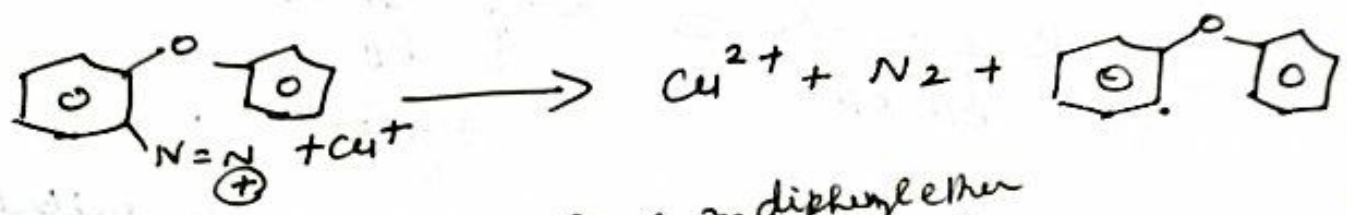 O O
N=N
+ +Cu+ → Cu2+ + N2 +
diphenyl ether